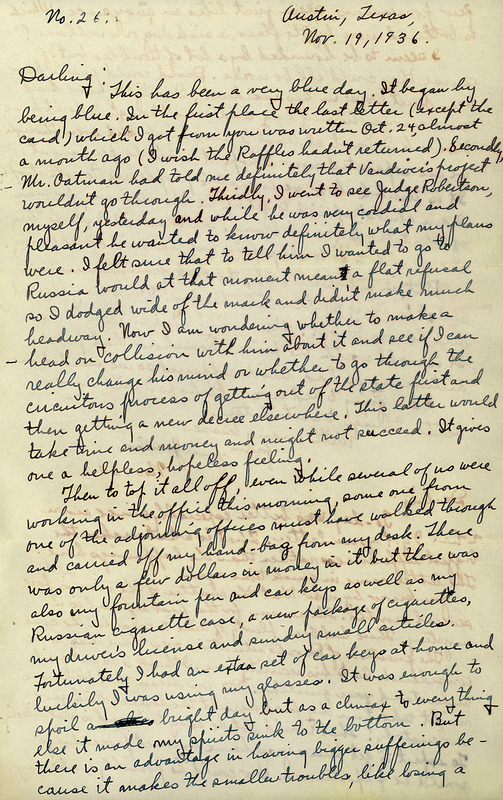 No. 26.
Austin, Texas,
Nov. 19, 1936.
Darling: This has been a very blue day. It began by
being blue. In the first place the last letter (except the
card) which I got from you was written Oct. 24, almost
a month ago (I wish the Raffles hadn't returned). Secondly,
Mr. Oatman had told me definitely that Vandiver's project
wouldn't go through. Thirdly, I went to see Judge Robertson,
myself, yesterday and while he was very cordial and
pleasant he wanted to know definitely what my plans
were. I felt sure that to tell him I wanted to go to
Russia would at that moment mean a flat refusal
so I dodged wide of the mark and didn't make much
headway. Now I am wondering whether to make a
head on collision with him about it and see if I can
really change his mind or whether to go through the
circuitous process of getting out of the state first and
then getting a new decree elsewhere. This latter would
take time and money and might not succeed. It gives
one a helpless, hopeless feeling.
Then to top it all off, even while several of us were
working in the office this morning, some one from
one of the adjoining offices must have walked through
and carried off my hand-bag from my desk. There
was only a few dollars in money in it but there was
also my fountain pen and car keys as well as my
Russian cigarette case, a new package of cigarettes,
my driver's license and sundry small articles.
Fortunately I had an extra set of car keys at home and
luckily I was using my glasses. It was enough to
spoil a bright day but as a climax to everything
else it made my spirits sink to the bottom. But
there is an advantage in having bigger sufferings be-
cause it makes the smaller troubles, like losing a